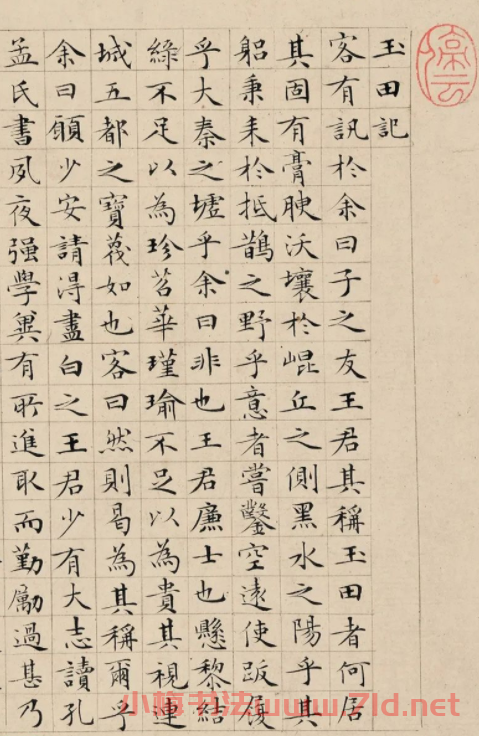 玉田記
客有訊於余曰子之友王君其稱玉田者何居
其固有膏腴沃壤於崐丘之側黑水之陽乎其
躬秉耒於抵鵲之野乎意者嘗鑿空遠使跋履
乎大秦之墟乎余曰非也王君廉士也懸黎結
綠不足以為珍苕華瑾瑜不足以為貴其視連
城五都之寶蔑如也客曰然則曷為其稱爾乎
余曰願少安請得盡白之王君少有大志讀孔
孟氏書夙夜强學兾有所進取而勤勵過甚乃
小梅书法www.7ld.net